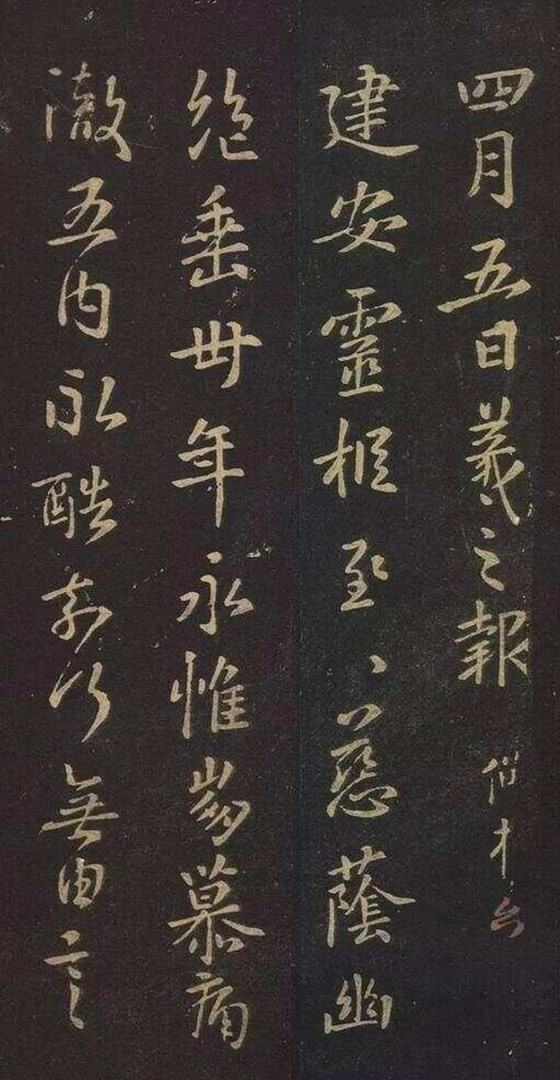 四月五日羲之報
建安靈柩至、慈蔭幽
絕垂卅年永惟崩慕痛
澈五內永酷奈何無由言